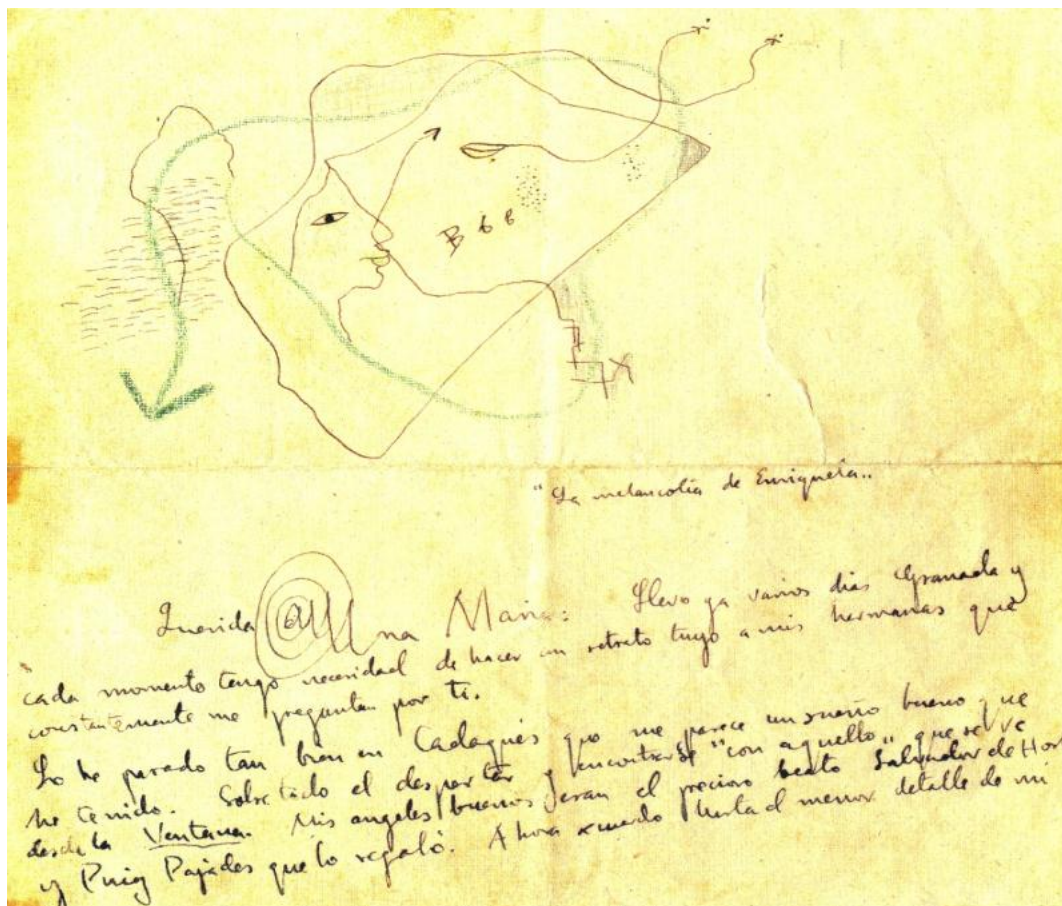 B 6 6
"La melancolía de Enriqueta"
Querida Ana María: Llevo ya varios dias Granada y
cada momento tengo necesidad de hacer un retrato tuyo a mis hermanas que
constantemente me preguntan por ti.
Lo he pasado tan bien en Cadaqués que me parece un sueño bueno que
he tenido. Sobre todo el despertar y encontrarse "con aquello" que se ve
desde la Ventana. Mis angeles buenos eran el precioso beato Salvador de Hor
y Puig Pujades que lo regaló. Ahora recuerdo hasta el menor detalle de mi